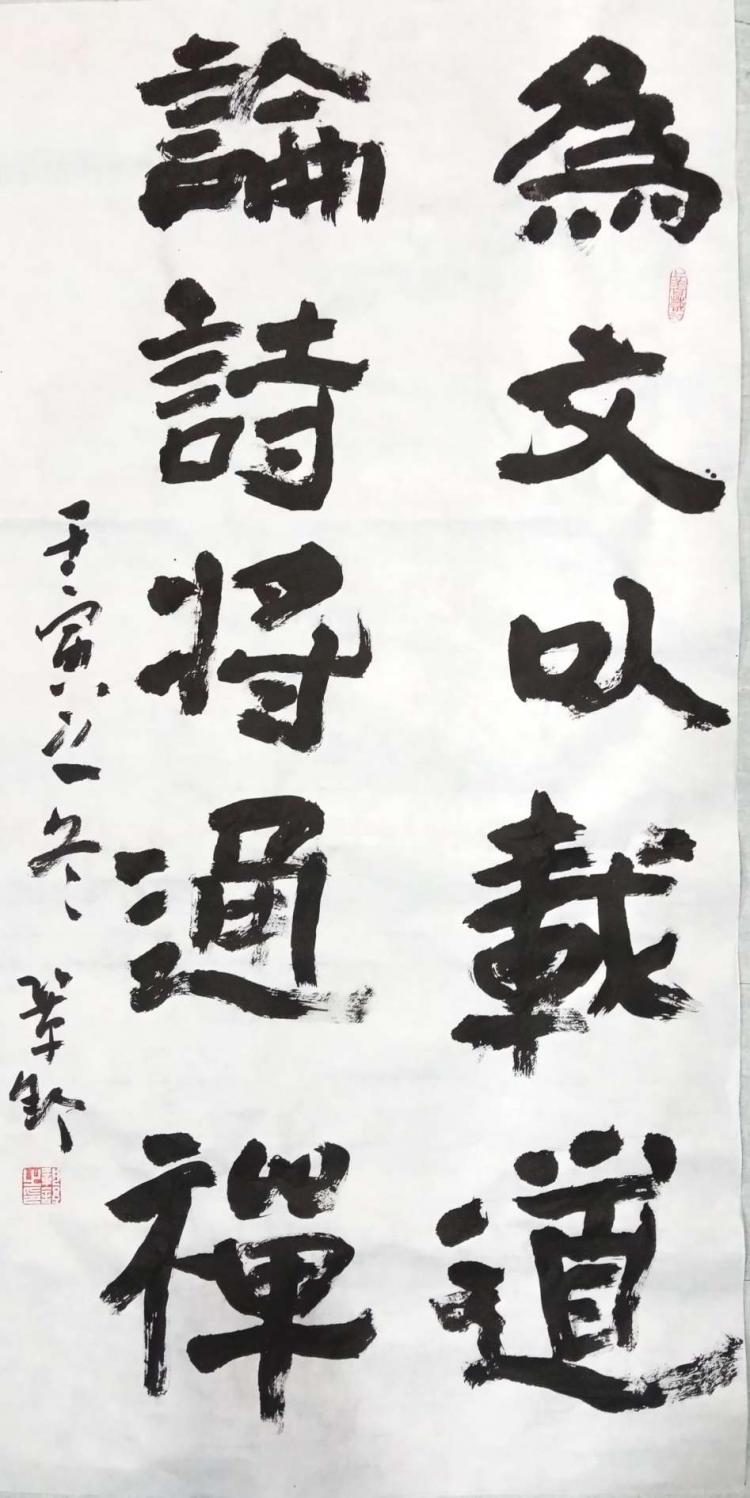 為文以載道
論詩将通禪
壬寅之冬